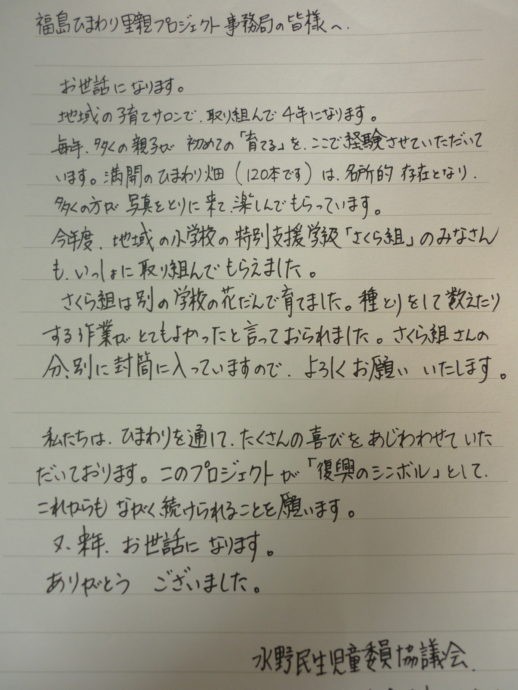 福島ひまわり里親プロジェクト事務局の皆様へ.
お世話になります。
地域の子育てサロンで、取り組んで4年になります。
毎年、多くの親子が 初めての「育てる」を、ここで経験させていただいて
います。満開のひまわり畑(120本です)は、名所的 存在となり、
多くの方が 写真をとりに来て、楽しんでもらっています。
今年度、地域の小学校の特別支援学級「さくら組」のみなさん
も、いっしょに取り組んでもらえました。
さくら組は別の学校の花だんで育てました。種とりをして数えたり
する作業がとてもよかったと言っておられました。さくら組さんの
分、別に封筒に入っていますので、よろしくお願い いたします。
私たちは、ひまわりを通して、たくさんの喜びをあじわわせていた
だいております。このプロジェクトが「復興のシンボル」として、
これからも ながく続けられることを願います。
又、来年、お世話に なります。
ありがとう ございました。
水野民生児童委員協議会.